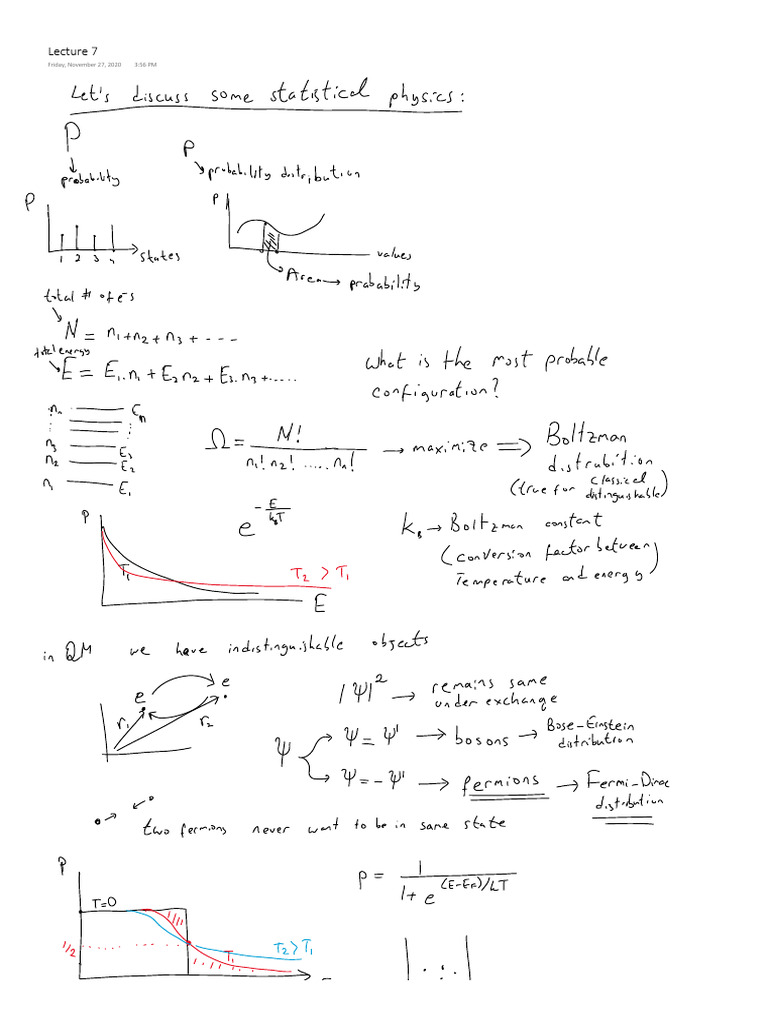 Lecture 7
Friday, November 27, 2020 3:56 PM
Let's discuss some statistical physics:
P
probability
P
probability distribution
P
1 2 3 4 states
P
values
Area → probability
total # of e's
N = n1+n2+n3+---
total energy
E = E1.n1+E2n2+E3.n3+.....
What is the most probable
configuration?
nn En
n3 E3
n2 E2
n1 E1
Ω = N! / n1! n2! ..... nn! → maximize ⇒ Boltzman
distrubition
(true for classical
distinguishable)
P
T1
T2 > T1
E
e^-E/kBT
kB → Boltzman constant
(conversion factor between
Temperature and energy)
in QM we have indistinguishable objects
e
e
r1
r2
|Ψ|² → remains same
under exchange
Ψ
Ψ = Ψ' → bosons → Bose-Einstein
distribution
Ψ = -Ψ' → fermions → Fermi-Dirac
distribution
two fermions never want to be in same state
P
T=0
1/2
T1
T2 > T1
P = 1 / 1+e^(E-EF)/kT